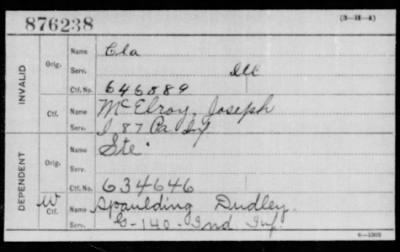 876238 (3-H-4)
Name Cla
Orig. Serv. Ill
INVALID Ctf. No. 646089
Name McElroy, Joseph
Ctf. Serv. I 87 Pa Inf
Name Ste.
Orig. Serv.
DEPENDENT Ctf. No. 634646
W Ctf. Name Spaulding Dudley
Serv. G-140- Ind Inf